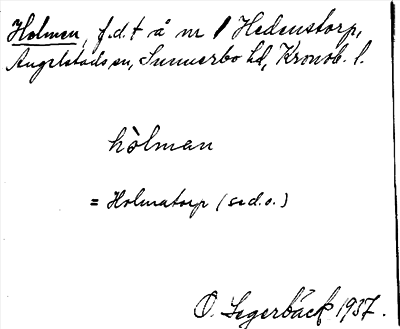 Holmen, f.d.t å nr 1 Hedenstorp,
Angelstads sn, Sunnerbo hd, Kronob. l.
hòlman
= Holmatorp (se d.o.)
O. Segerbäck 1937.